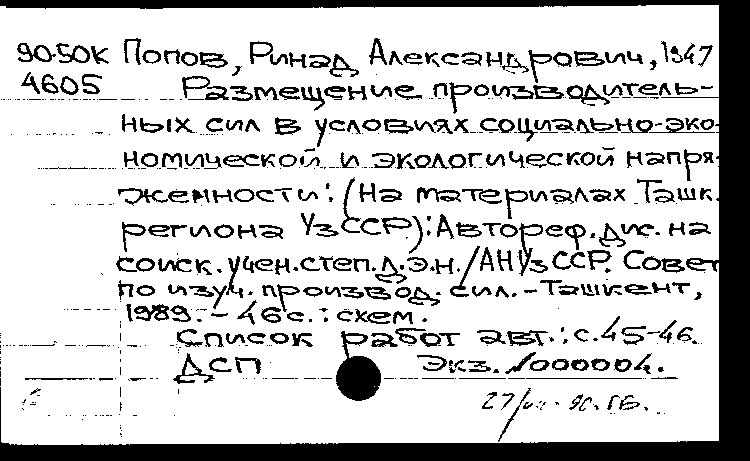 90-50К Попов, Ринад Александрович, 1947
4605 Размещение производитель-
ных сил в условиях социально-эко-
номической и экологической напря-
женности: (На материалах Ташк.
региона УзССР): Автореф. дис. на
соиск. учен. степ. д.э.н. / АН УзССР. Совет
по изуч. производ. сил. - Ташкент,
1989. - 46 с. : схем.
Список работ авт.: с. 45-46.
ДСП Экз. N000004.
27/ 90. ГБ.